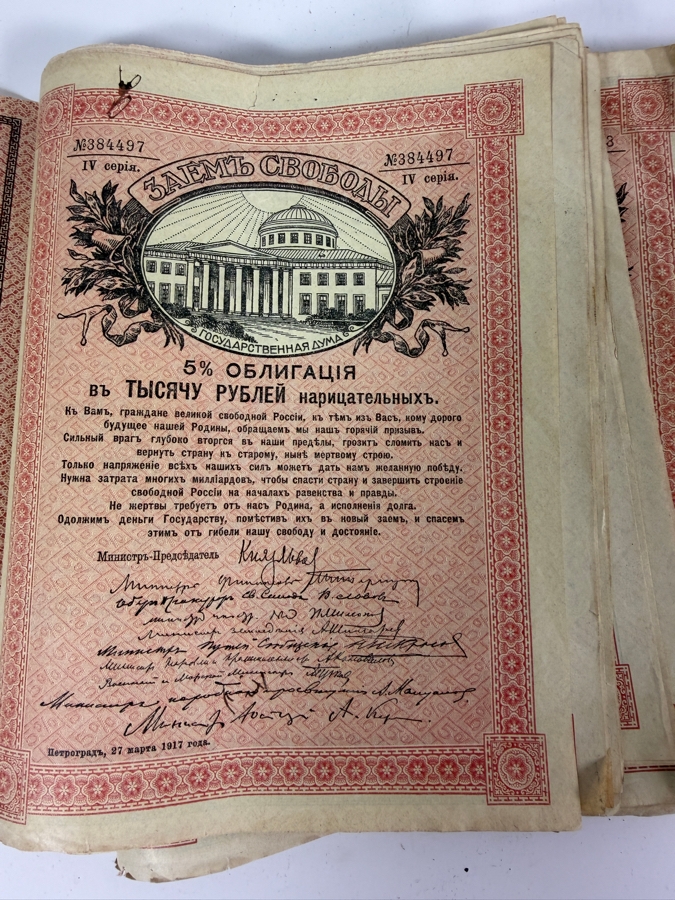 №384497
IV серія.
№384497
IV серія.
ЗАЕМЪ СВОБОДЫ
ГОСУДАРСТВЕННАЯ ДУМА
5% ОБЛИГАЦІЯ
въ ТЫСЯЧУ РУБЛЕЙ нарицательныхъ.
Къ Вамъ, граждане великой свободной Россіи, къ тѣмъ изъ Васъ, кому дорого
будущее нашей Родины, обращаемъ мы нашъ горячій призывъ.
Сильный врагъ глубоко вторгся въ наши предѣлы, грозитъ сломить насъ и
вернуть страну къ старому, нынѣ мертвому строю.
Только напряженіе всѣхъ нашихъ силъ можетъ дать намъ желанную побѣду.
Нужна затрата многихъ милліардовъ, чтобы спасти страну и завершить строеніе
свободной Россіи на началахъ равенства и правды.
Не жертвы требуетъ отъ насъ Родина, а исполненія долга.
Одолжимъ деньги Государству, помѣстивъ ихъ въ новый заемъ, и спасемъ
этимъ отъ гибели нашу свободу и достояніе.
Министръ-Предсѣдатель Князь Львовъ
Министръ финансовъ
Оберъ Прокуроръ Св. Синода В. Львовъ
Министръ земледѣлія А. Шингаревъ
Министръ Путей Сообщенія Н. Некрасовъ
Министръ Торговли и Промышленности А. Коноваловъ
Военный и Морской Министръ А. Гучковъ
Министръ народнаго просвѣщенія А. Мануйловъ
Министръ Юстиціи А. Керенскій
Петроградъ, 27 марта 1917 года.
3